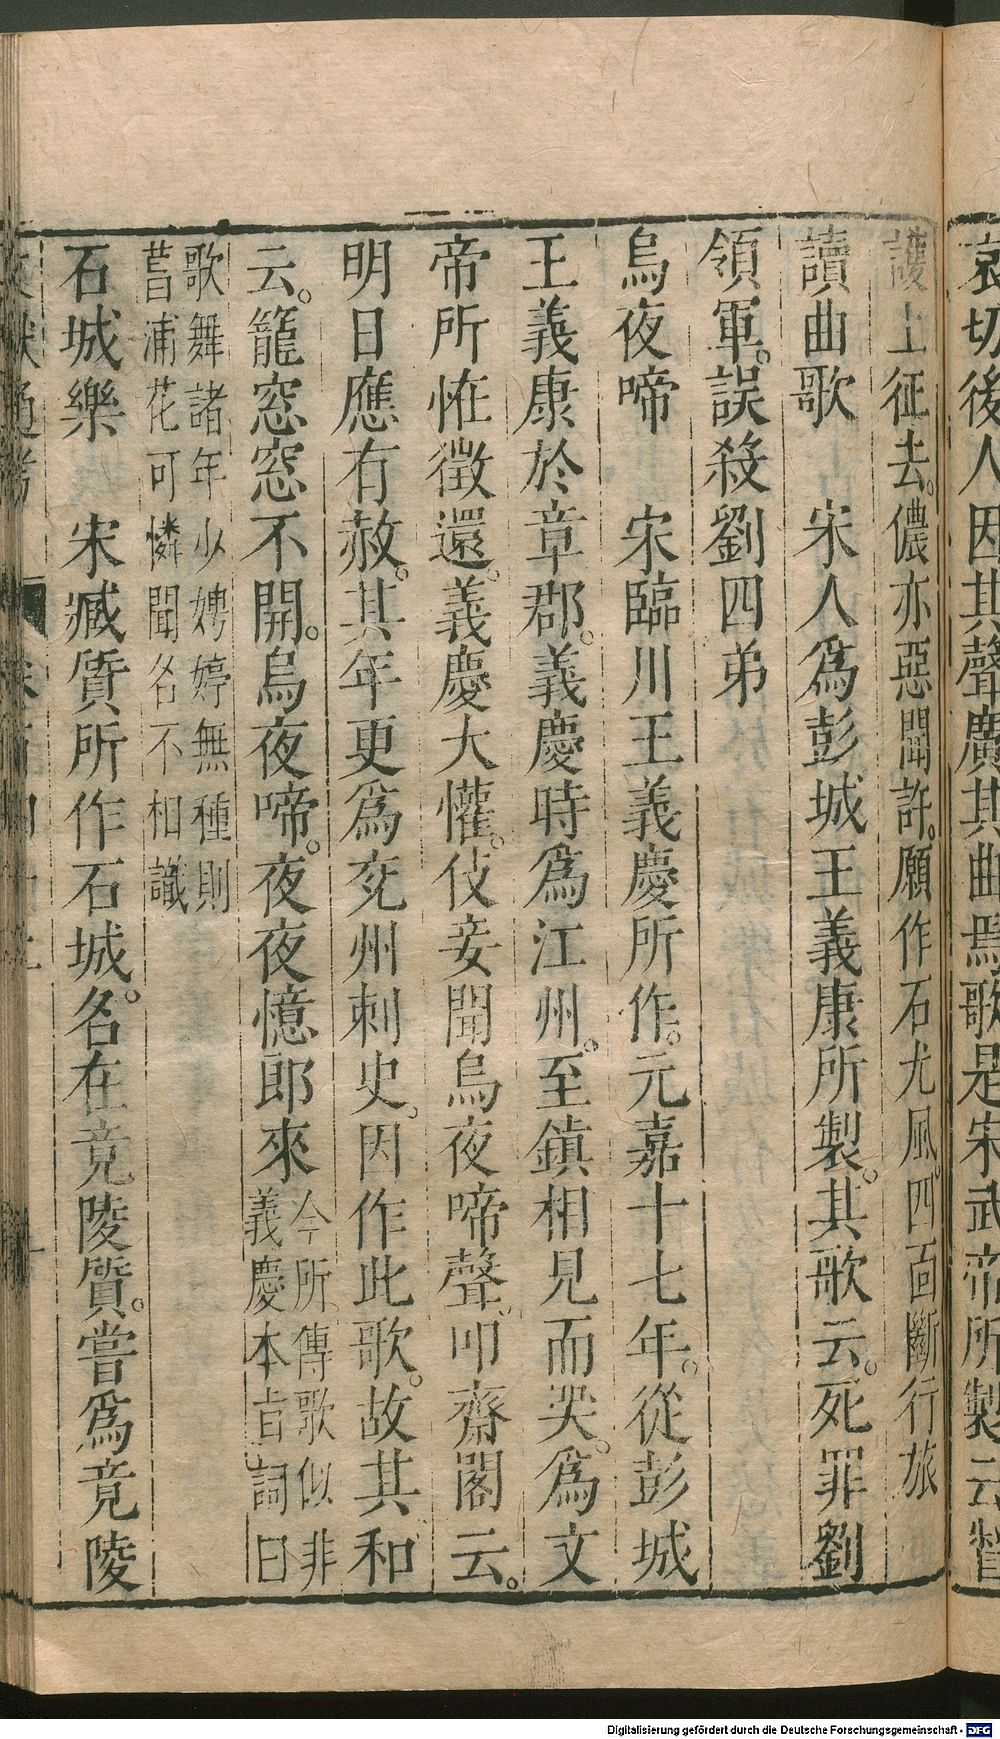 哀切後人因其聲廣其曲焉歌是宋武帝所製云督
護上征去。儂亦惡聞許。願作石尤風。四面斷行旅
讀曲歌　宋人爲彭城王義康所製。其歌云。死罪劉
領軍。誤殺劉四弟
烏夜啼　宋臨川王義慶所作。元嘉十七年。從彭城
王義康於章郡。義慶時爲江州。至鎮相見而哭。爲文
帝所恠徵還。義慶大懼。伎妾聞烏夜啼聲。叩齋閣云。
明日應有赦。其年更爲兗州刺史。因作此歌。故其和
云。籠窓窓不開。烏夜啼。夜夜憶郎來
今所傳歌似非
義慶本旨詞曰
歌舞諸年少娉婷無種則
菖浦花可憐聞名不相識
石城樂　宋臧質所作石城。名在竟陵質。嘗爲竟陵
Digitalisierung gefördert durch die Deutsche Forschungsgemeinschaft - DFG